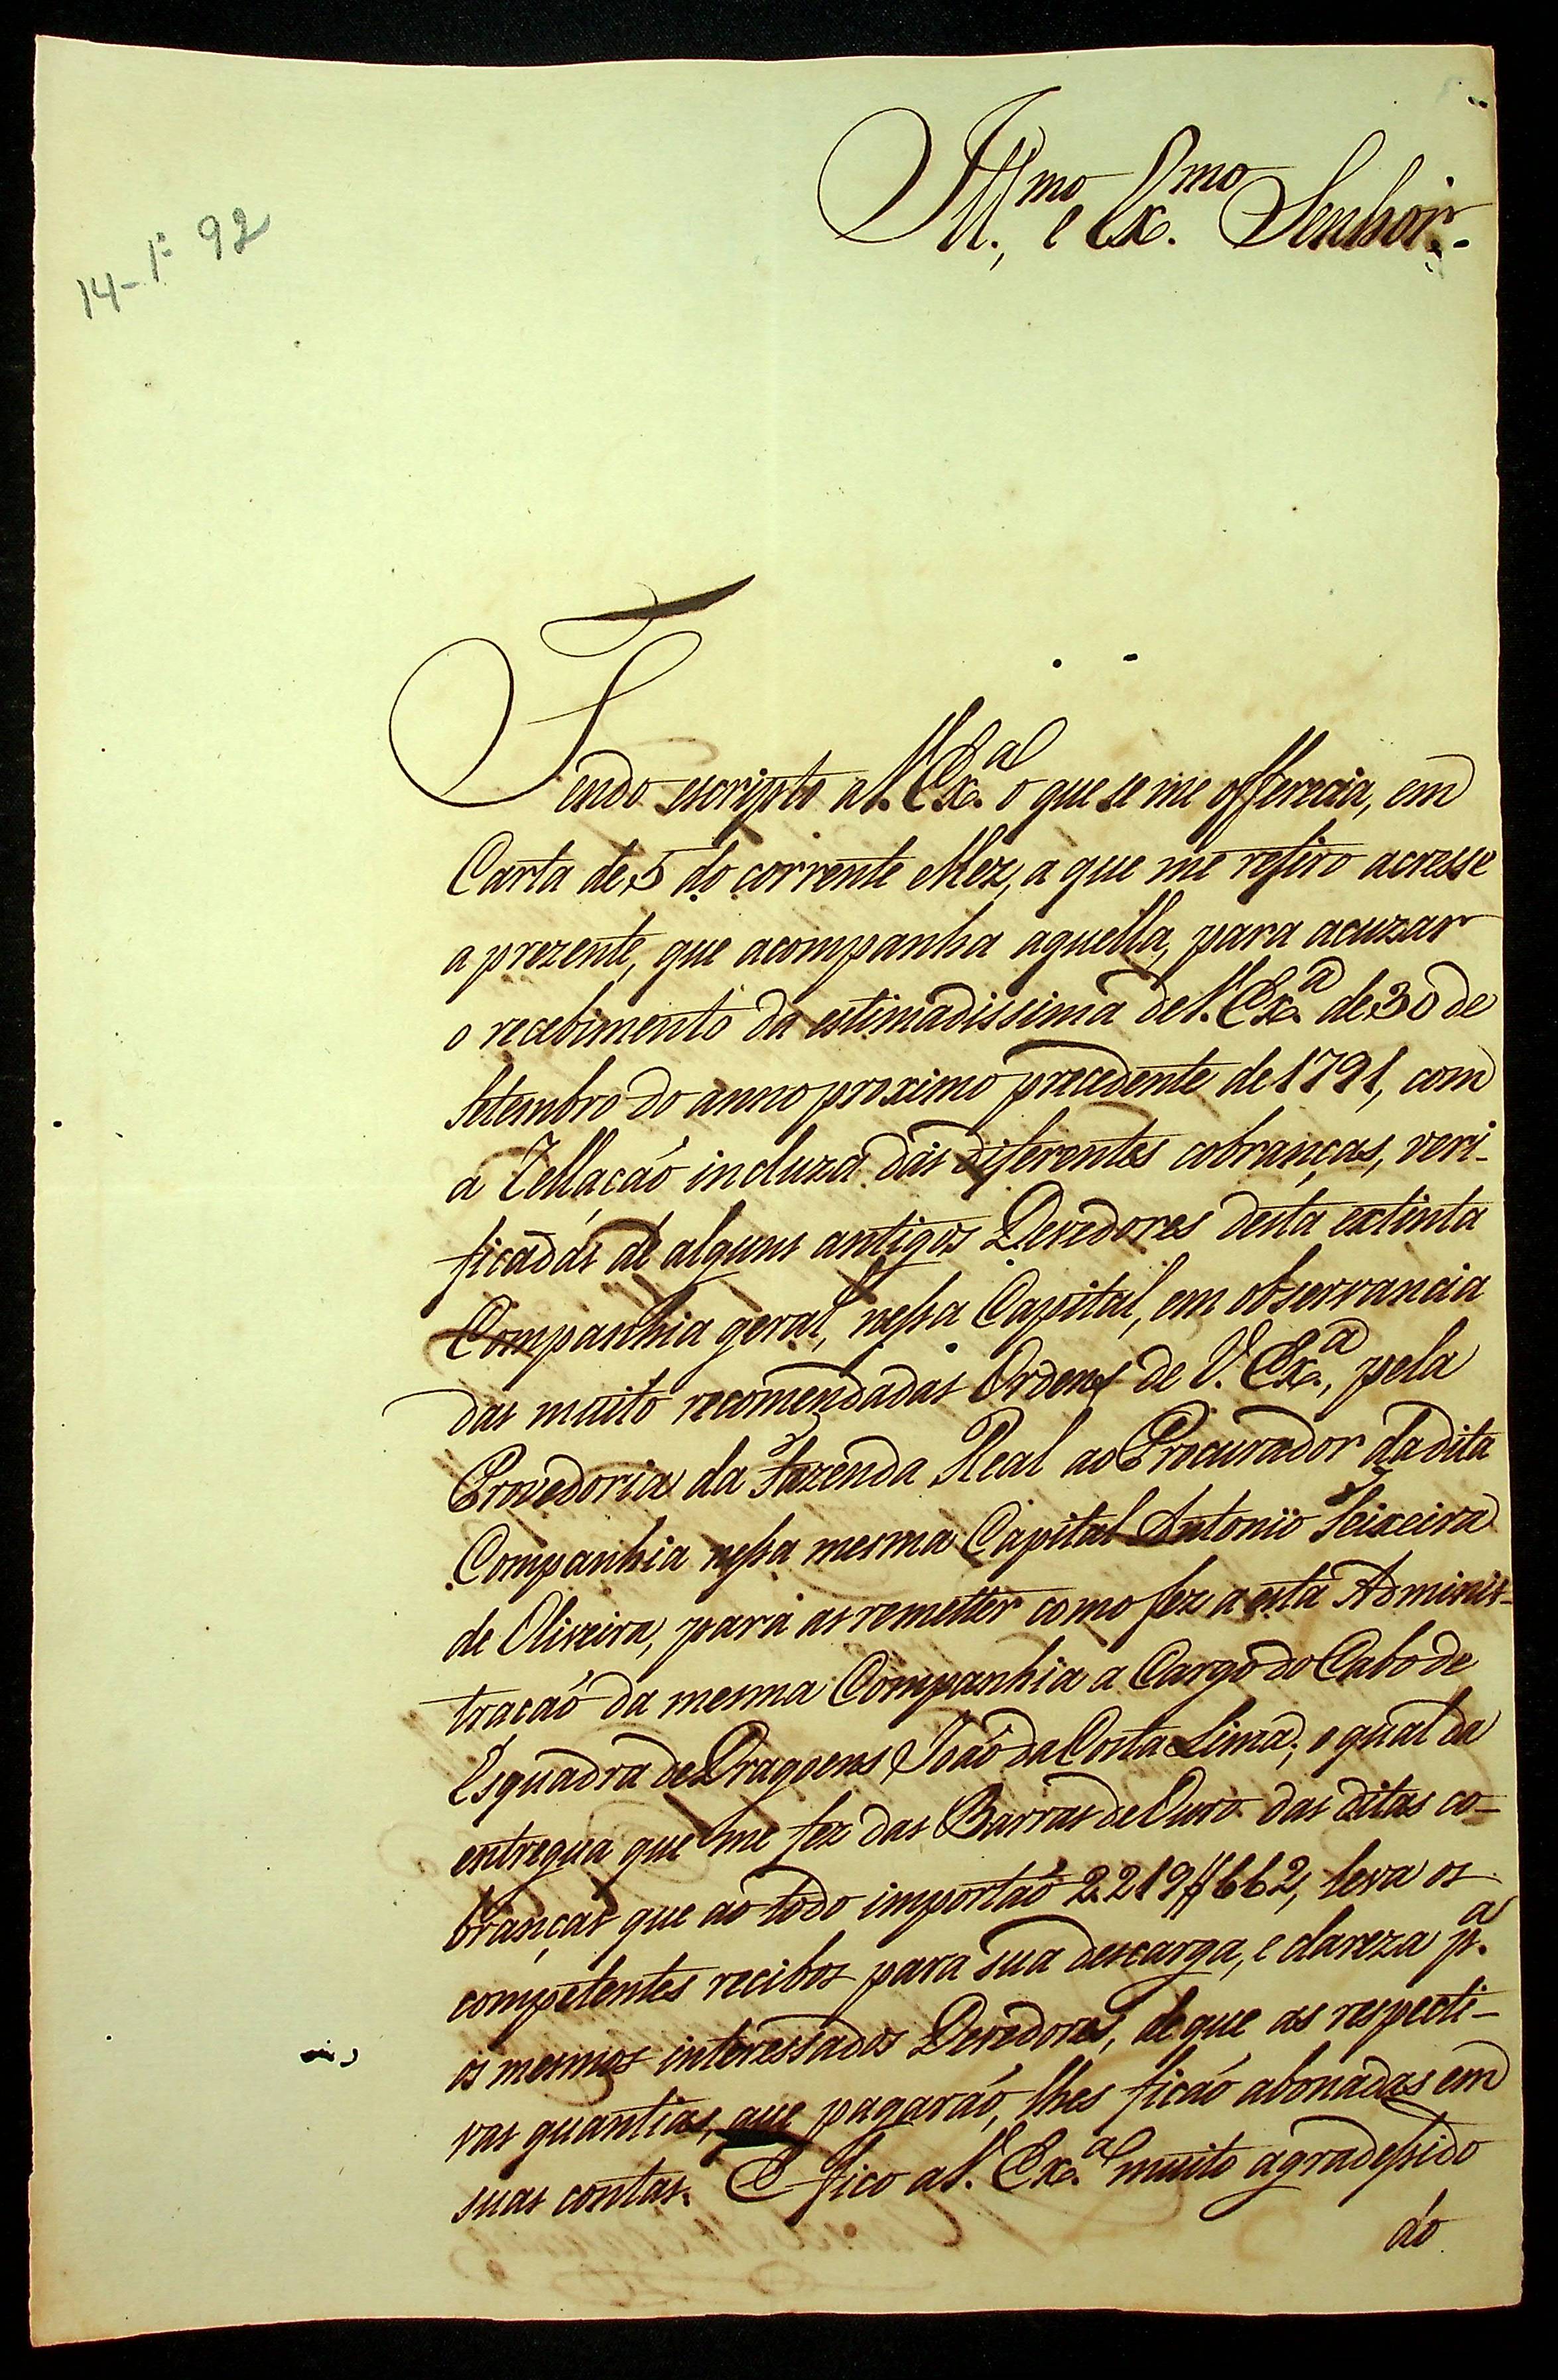 Ill.mo e Ex.mo Senhor.
14-1º 92
Tendo escripto a V. Ex.a o que se me offerecia, em
Carta de 5 do corrente Mez, a que me refiro acresse
a prezente, que acompanha aquella, para acuzar
o recebimento da estimadissima de V. Ex.a de 30 de
Setembro do anno proximo precedente de 1791, com
a Rellação incluza das diferentes cobranças, veri-
ficadas de alguns antigos Devedores desta extinta
Companhia geral, nessa Capital, em observancia
das muito recomendadas Ordens de V. Ex.a, pela
Provedoria da Fazenda Real ao Procurador da dita
Companhia nessa mesma Capital Antonio Teixeira
de Oliveira, para as remetter como fez a esta Adminis-
tração da mesma Companhia a Cargo do Cabo de
Esquadra de Dragoens João da Costa Lima; o qual da
entregua que me fez das Barras de Ouro das ditas co-
branças que ao todo importão 2219$662, leva os
competentes recibos para sua descarga, e clareza p.a
os mesmos interessados Devedores, de que as respecti-
vas quantias, que pagarão, lhes ficão abonadas em
suas contas. E fico a V. Ex.a muito agradessido
do